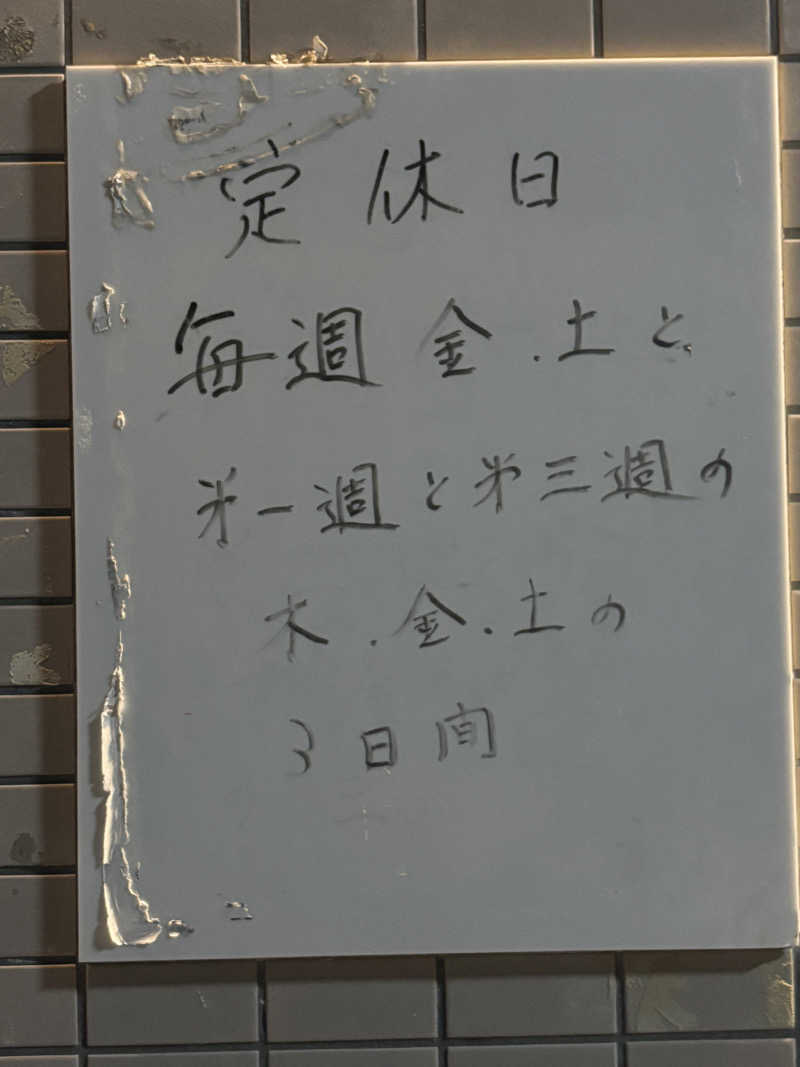 定休日
毎週金.土と
第一週と第三週の
木.金.土の
3日間